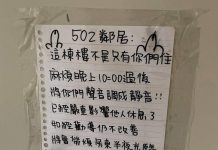 502鄰居:
這棟樓不是只有你們住
麻煩晚上10:00過後
將你們聲音調成靜音!!
已經嚴重影響他人休息3
如經勸導仍不改善
將